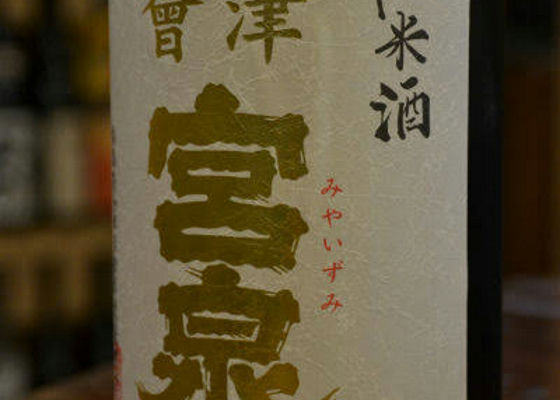 會津
宮泉
みやいずみ
米酒